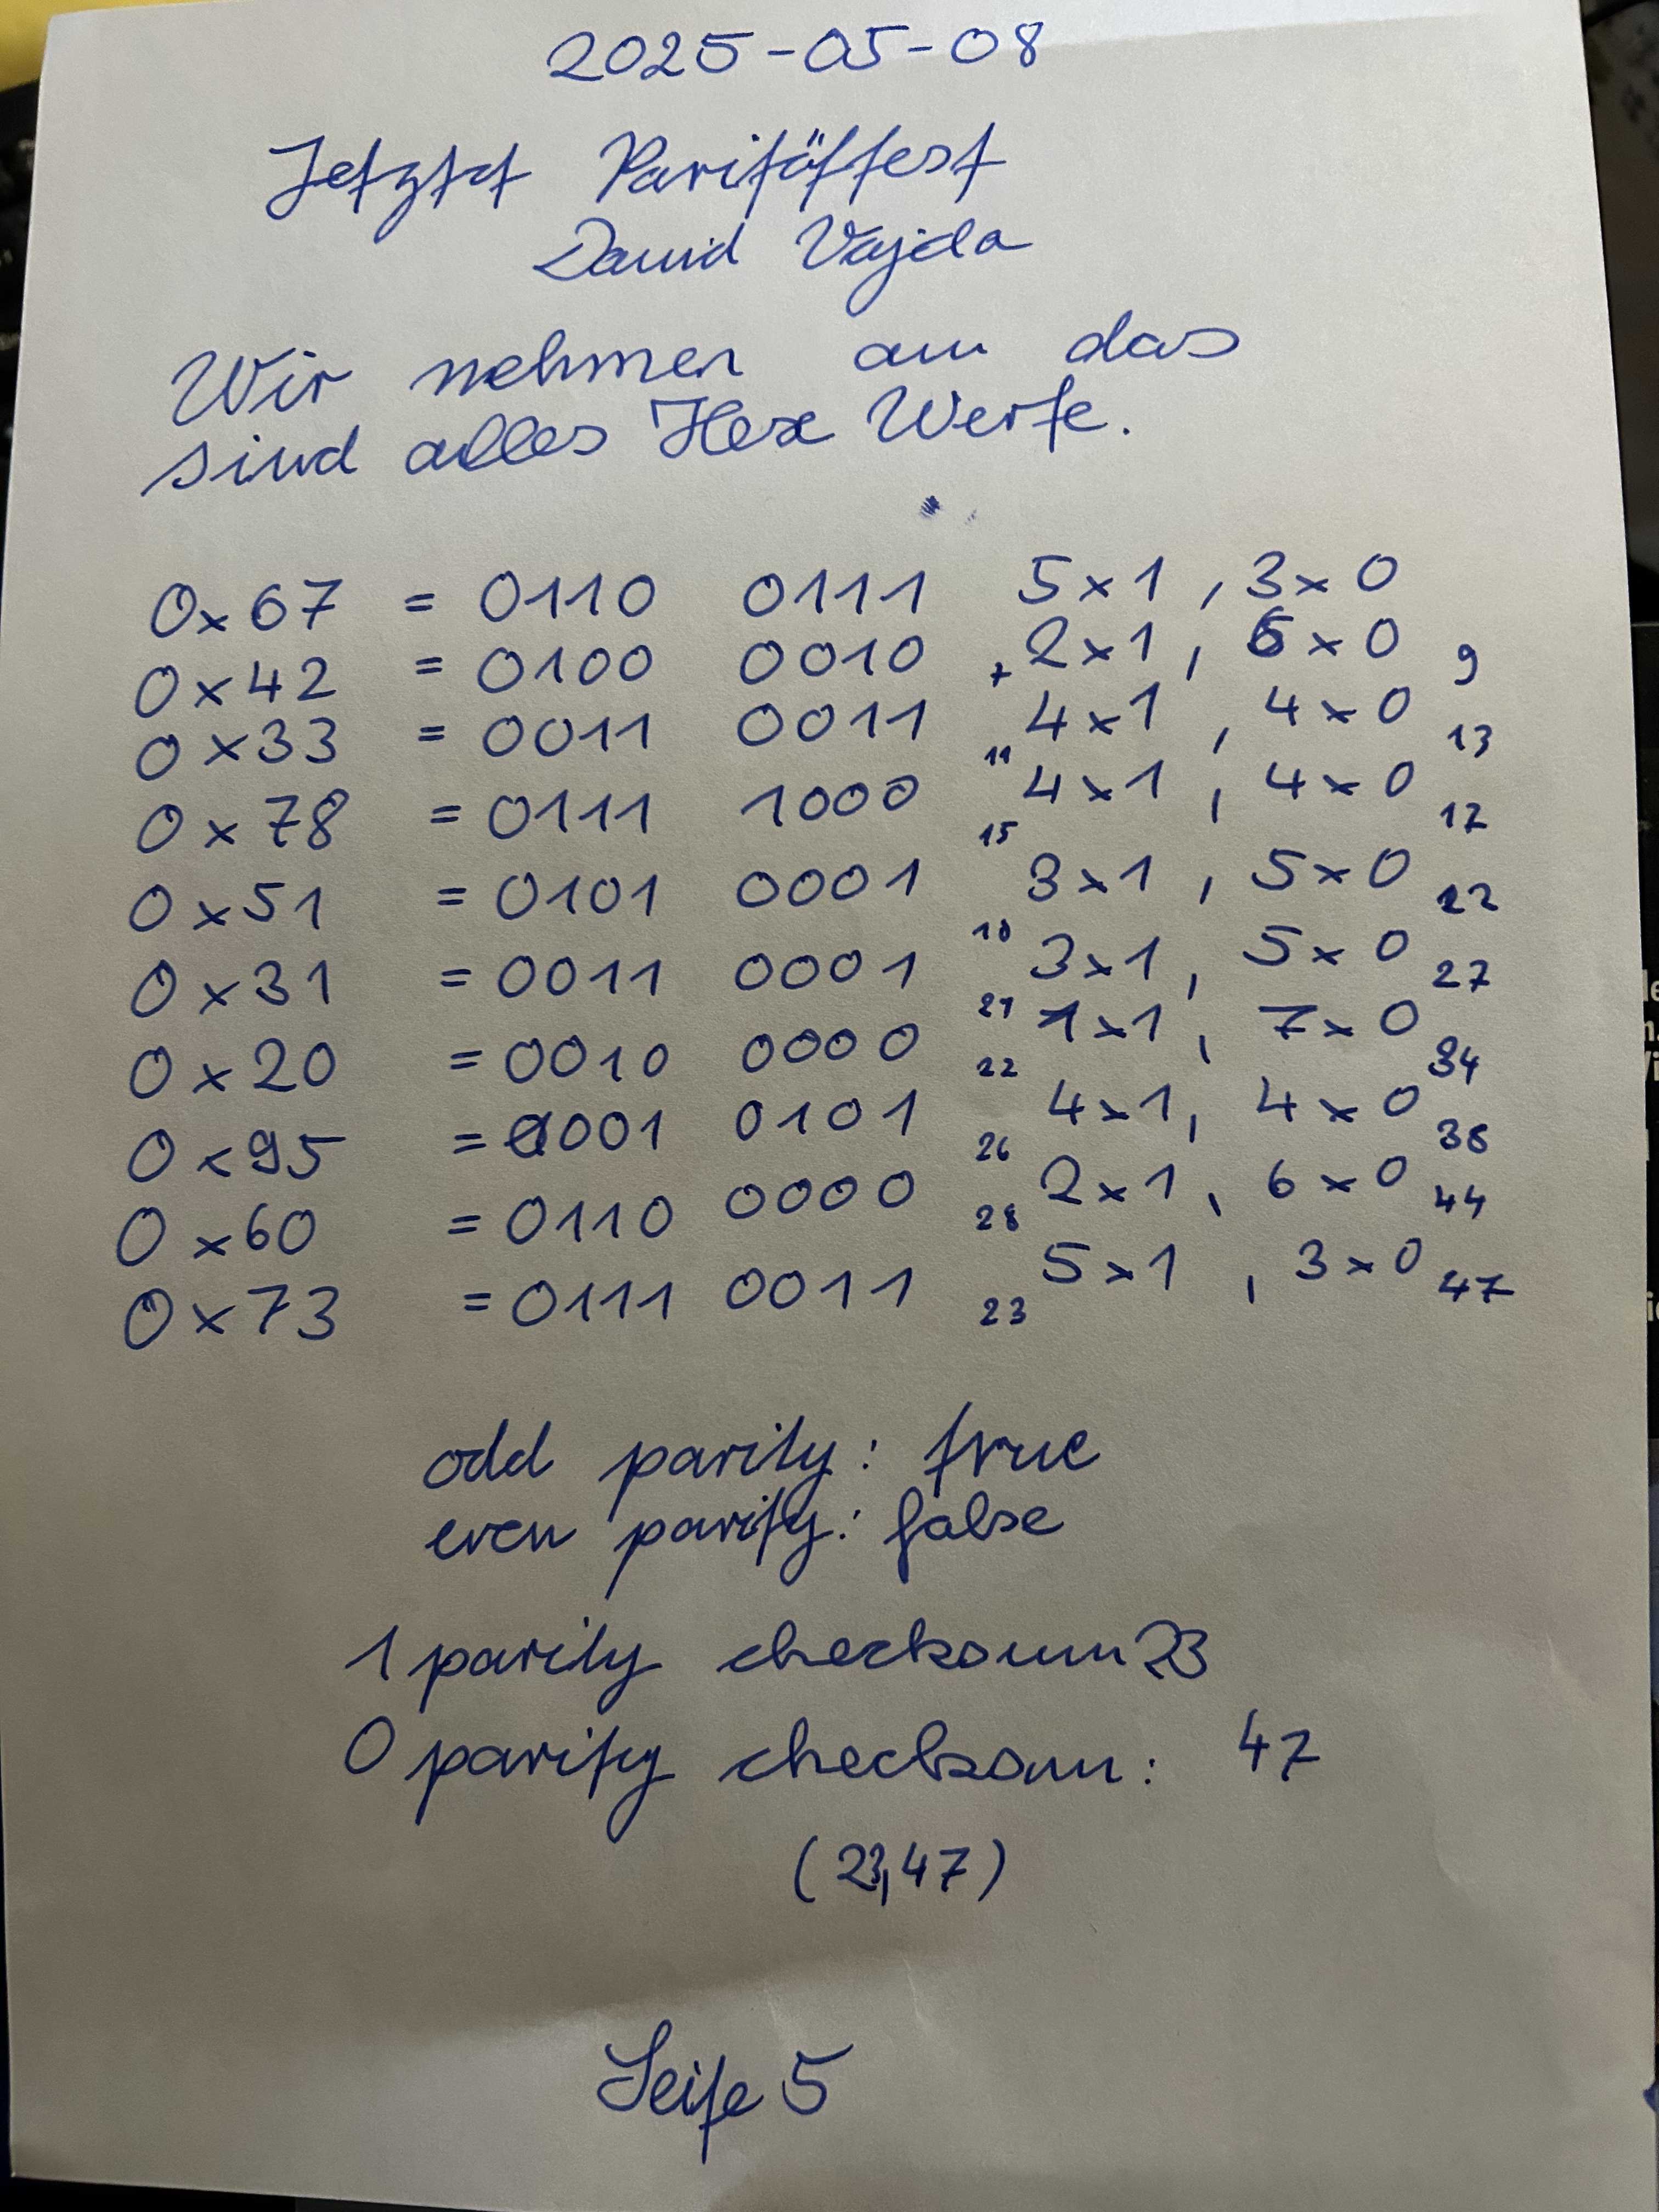 2025-05-08
Jetztt Paritättest
David Vajda
Wir nehmen an das
sind alles Hex Werte.
0x67 = 0110 0111 5x1, 3x0
0x42 = 0100 0010 7 2x1, 6x0 9
0x33 = 0011 0011 11 4x1, 4x0 13
0x78 = 0111 1000 15 4x1, 4x0 17
0x51 = 0101 0001 18 3x1, 5x0 22
0x31 = 0011 0001 21 3x1, 5x0 27
0x20 = 0010 0000 22 1x1, 7x0 34
0x95 = 1001 0101 26 4x1, 4x0 38
0x60 = 0110 0000 28 2x1, 6x0 44
0x73 = 0111 0011 23 5x1, 3x0 47
odd parity: true
even parity: false
1 parity checksumm 23
0 parity checksum: 47
(23,47)
Seite 5